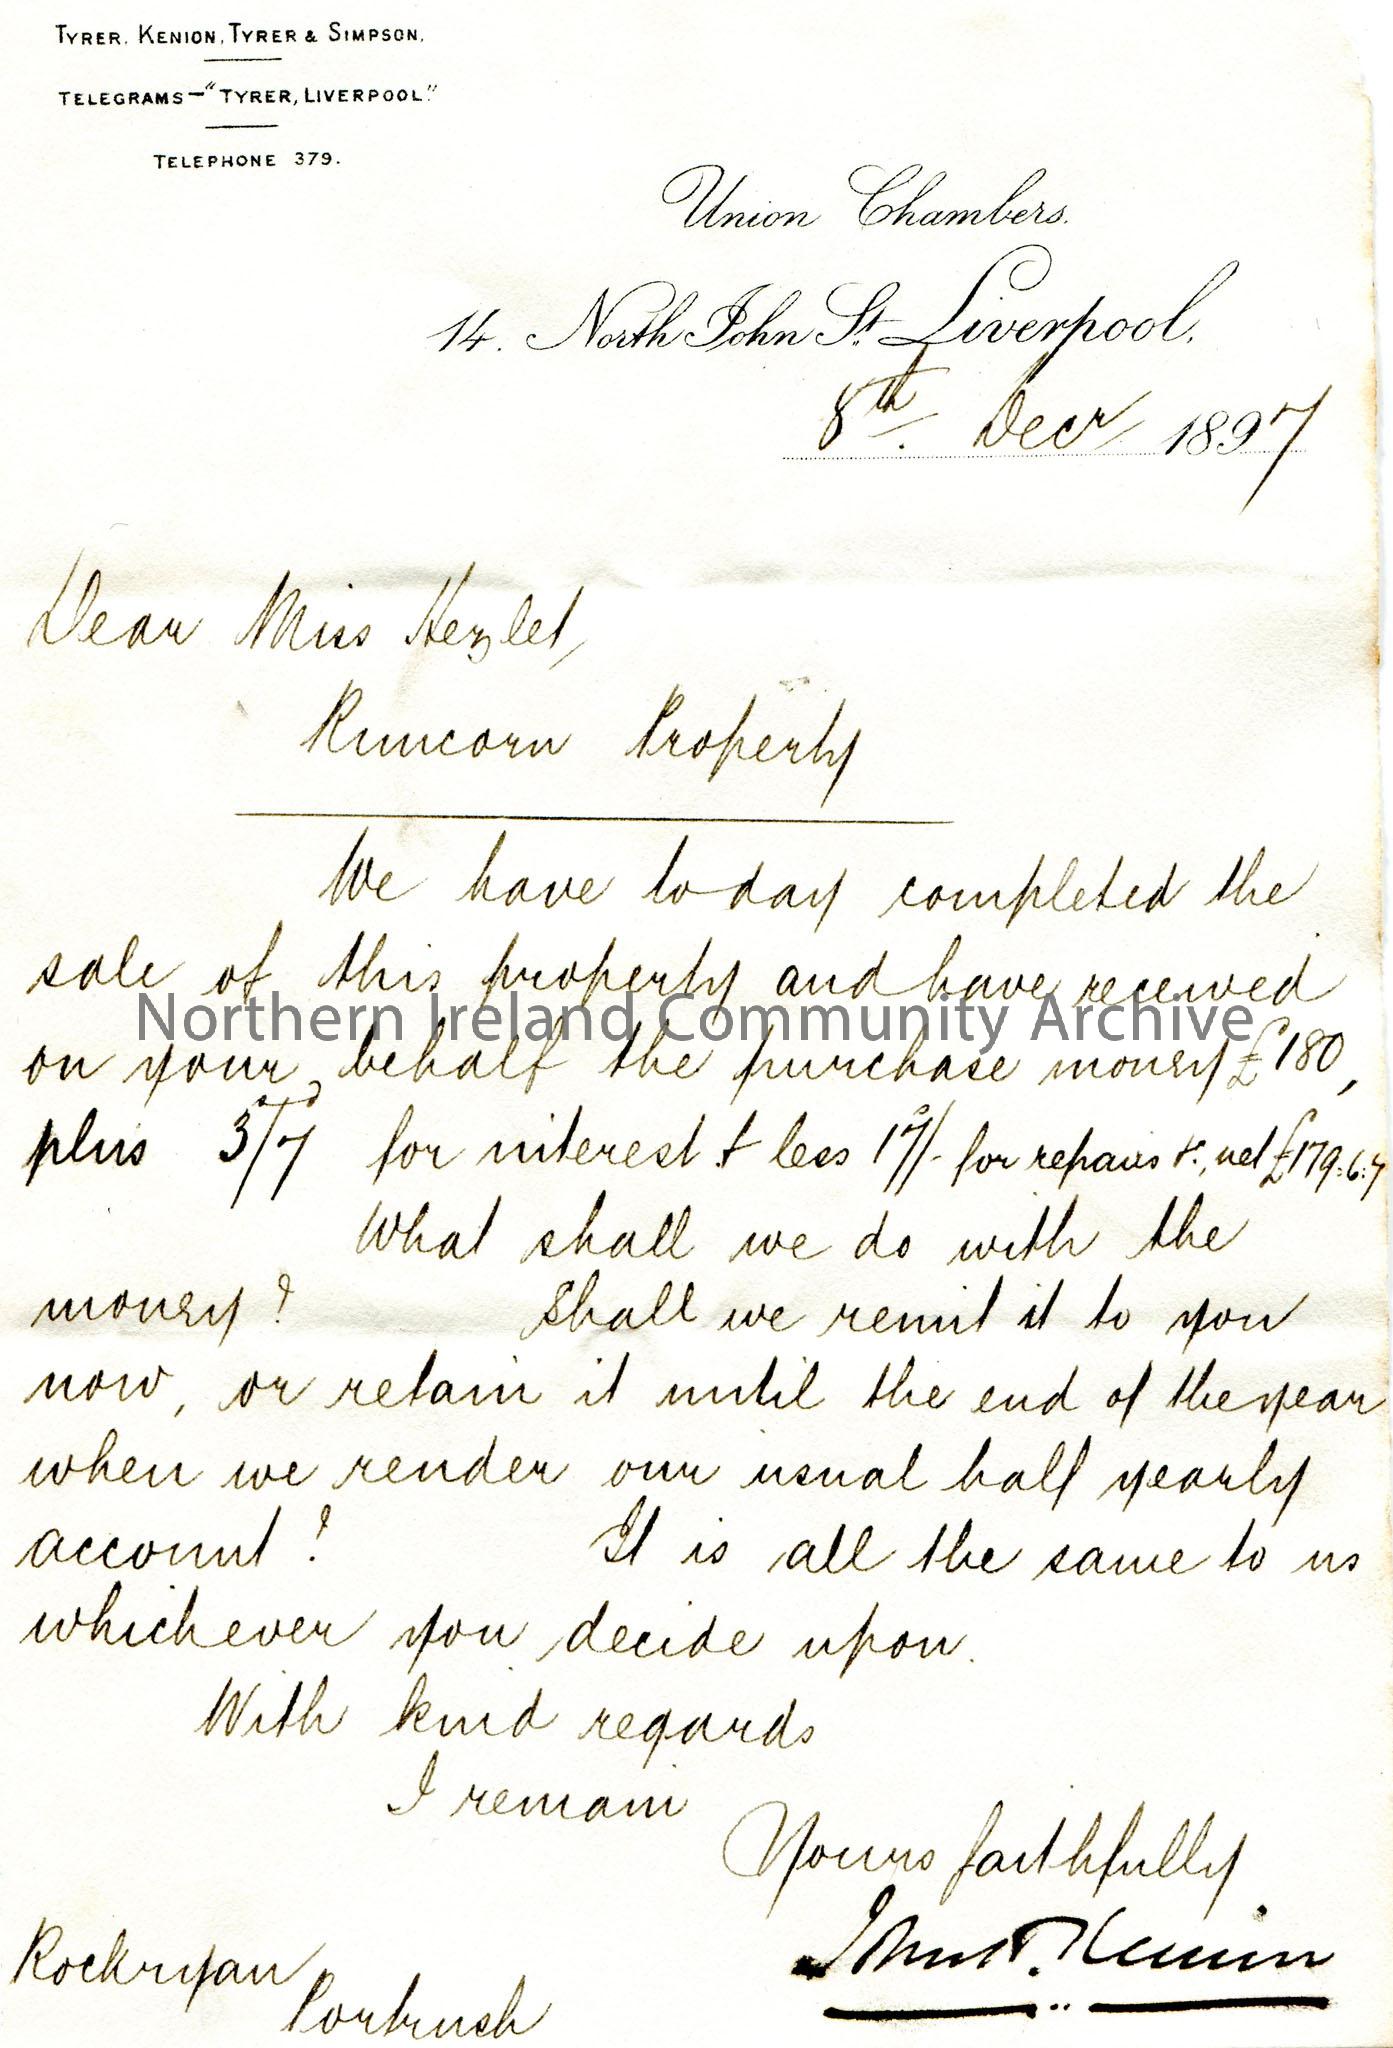 TYRER, KENION, TYRER & SIMPSON.
TELEGRAMS—"TYRER, LIVERPOOL."
TELEPHONE 379.
Union Chambers.
14. North John St. Liverpool.
8th. Decr 1897
Dear Miss Hezlet,
Runcorn Property
We have today completed the
sale of this property and have received
Northern Ireland Community Archive
on your behalf the purchase money £180,
plus 3/7 for interest & less 17/- for repairs &c, net £179:6:7
What shall we do with the
money? Shall we remit it to you
now, or retain it until the end of the year
when we render our usual half yearly
account? It is all the same to us
whichever you decide upon.
With kind regards
I remain
Yours faithfully
John Kenion
Rockryan
Portrush